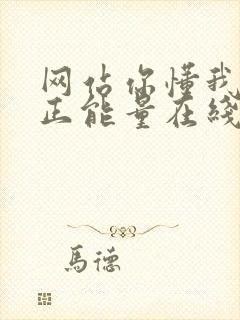 网站你懂我
正能量在线
馬德